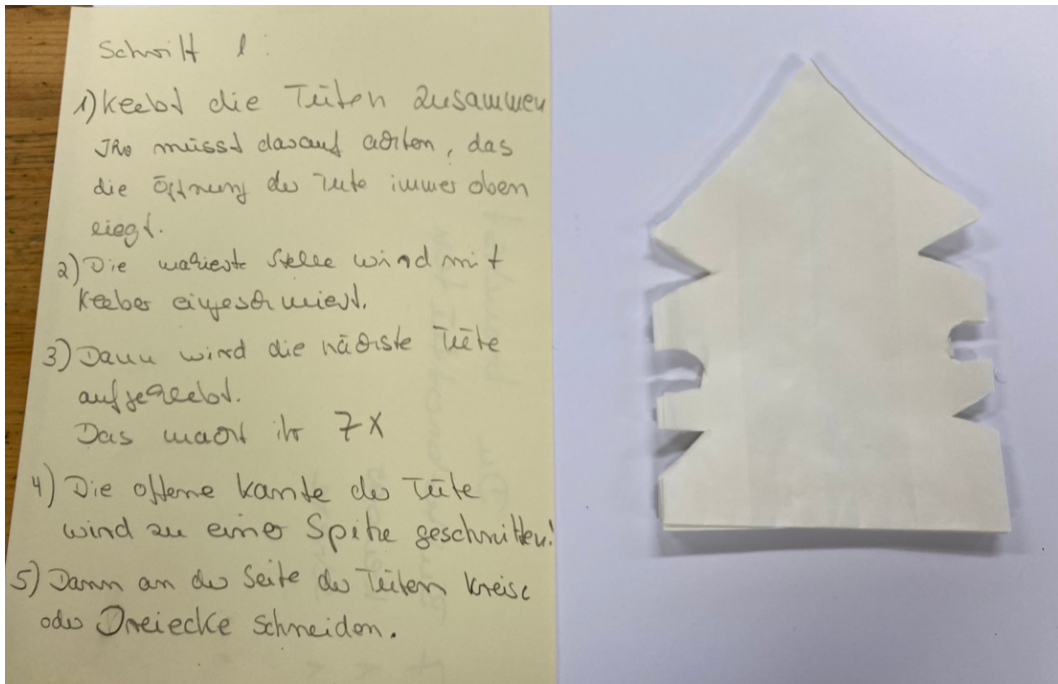 Schritt 1:
1) Klebt die Tüten zusammen
Ihr müsst darauf achten, das
die Öffnung der Tüte immer oben
liegt.
2) Die makierte Stelle wird mit
Kleber eingeschmiert.
3) Dann wird die nächste Tüte
aufgeklebt.
Das macht ihr 7x
4) Die offene Kante der Tüte
wird zu einer Spitze geschnitten!
5) Dann an der Seite der Tüten Kreise
oder Dreiecke schneiden.